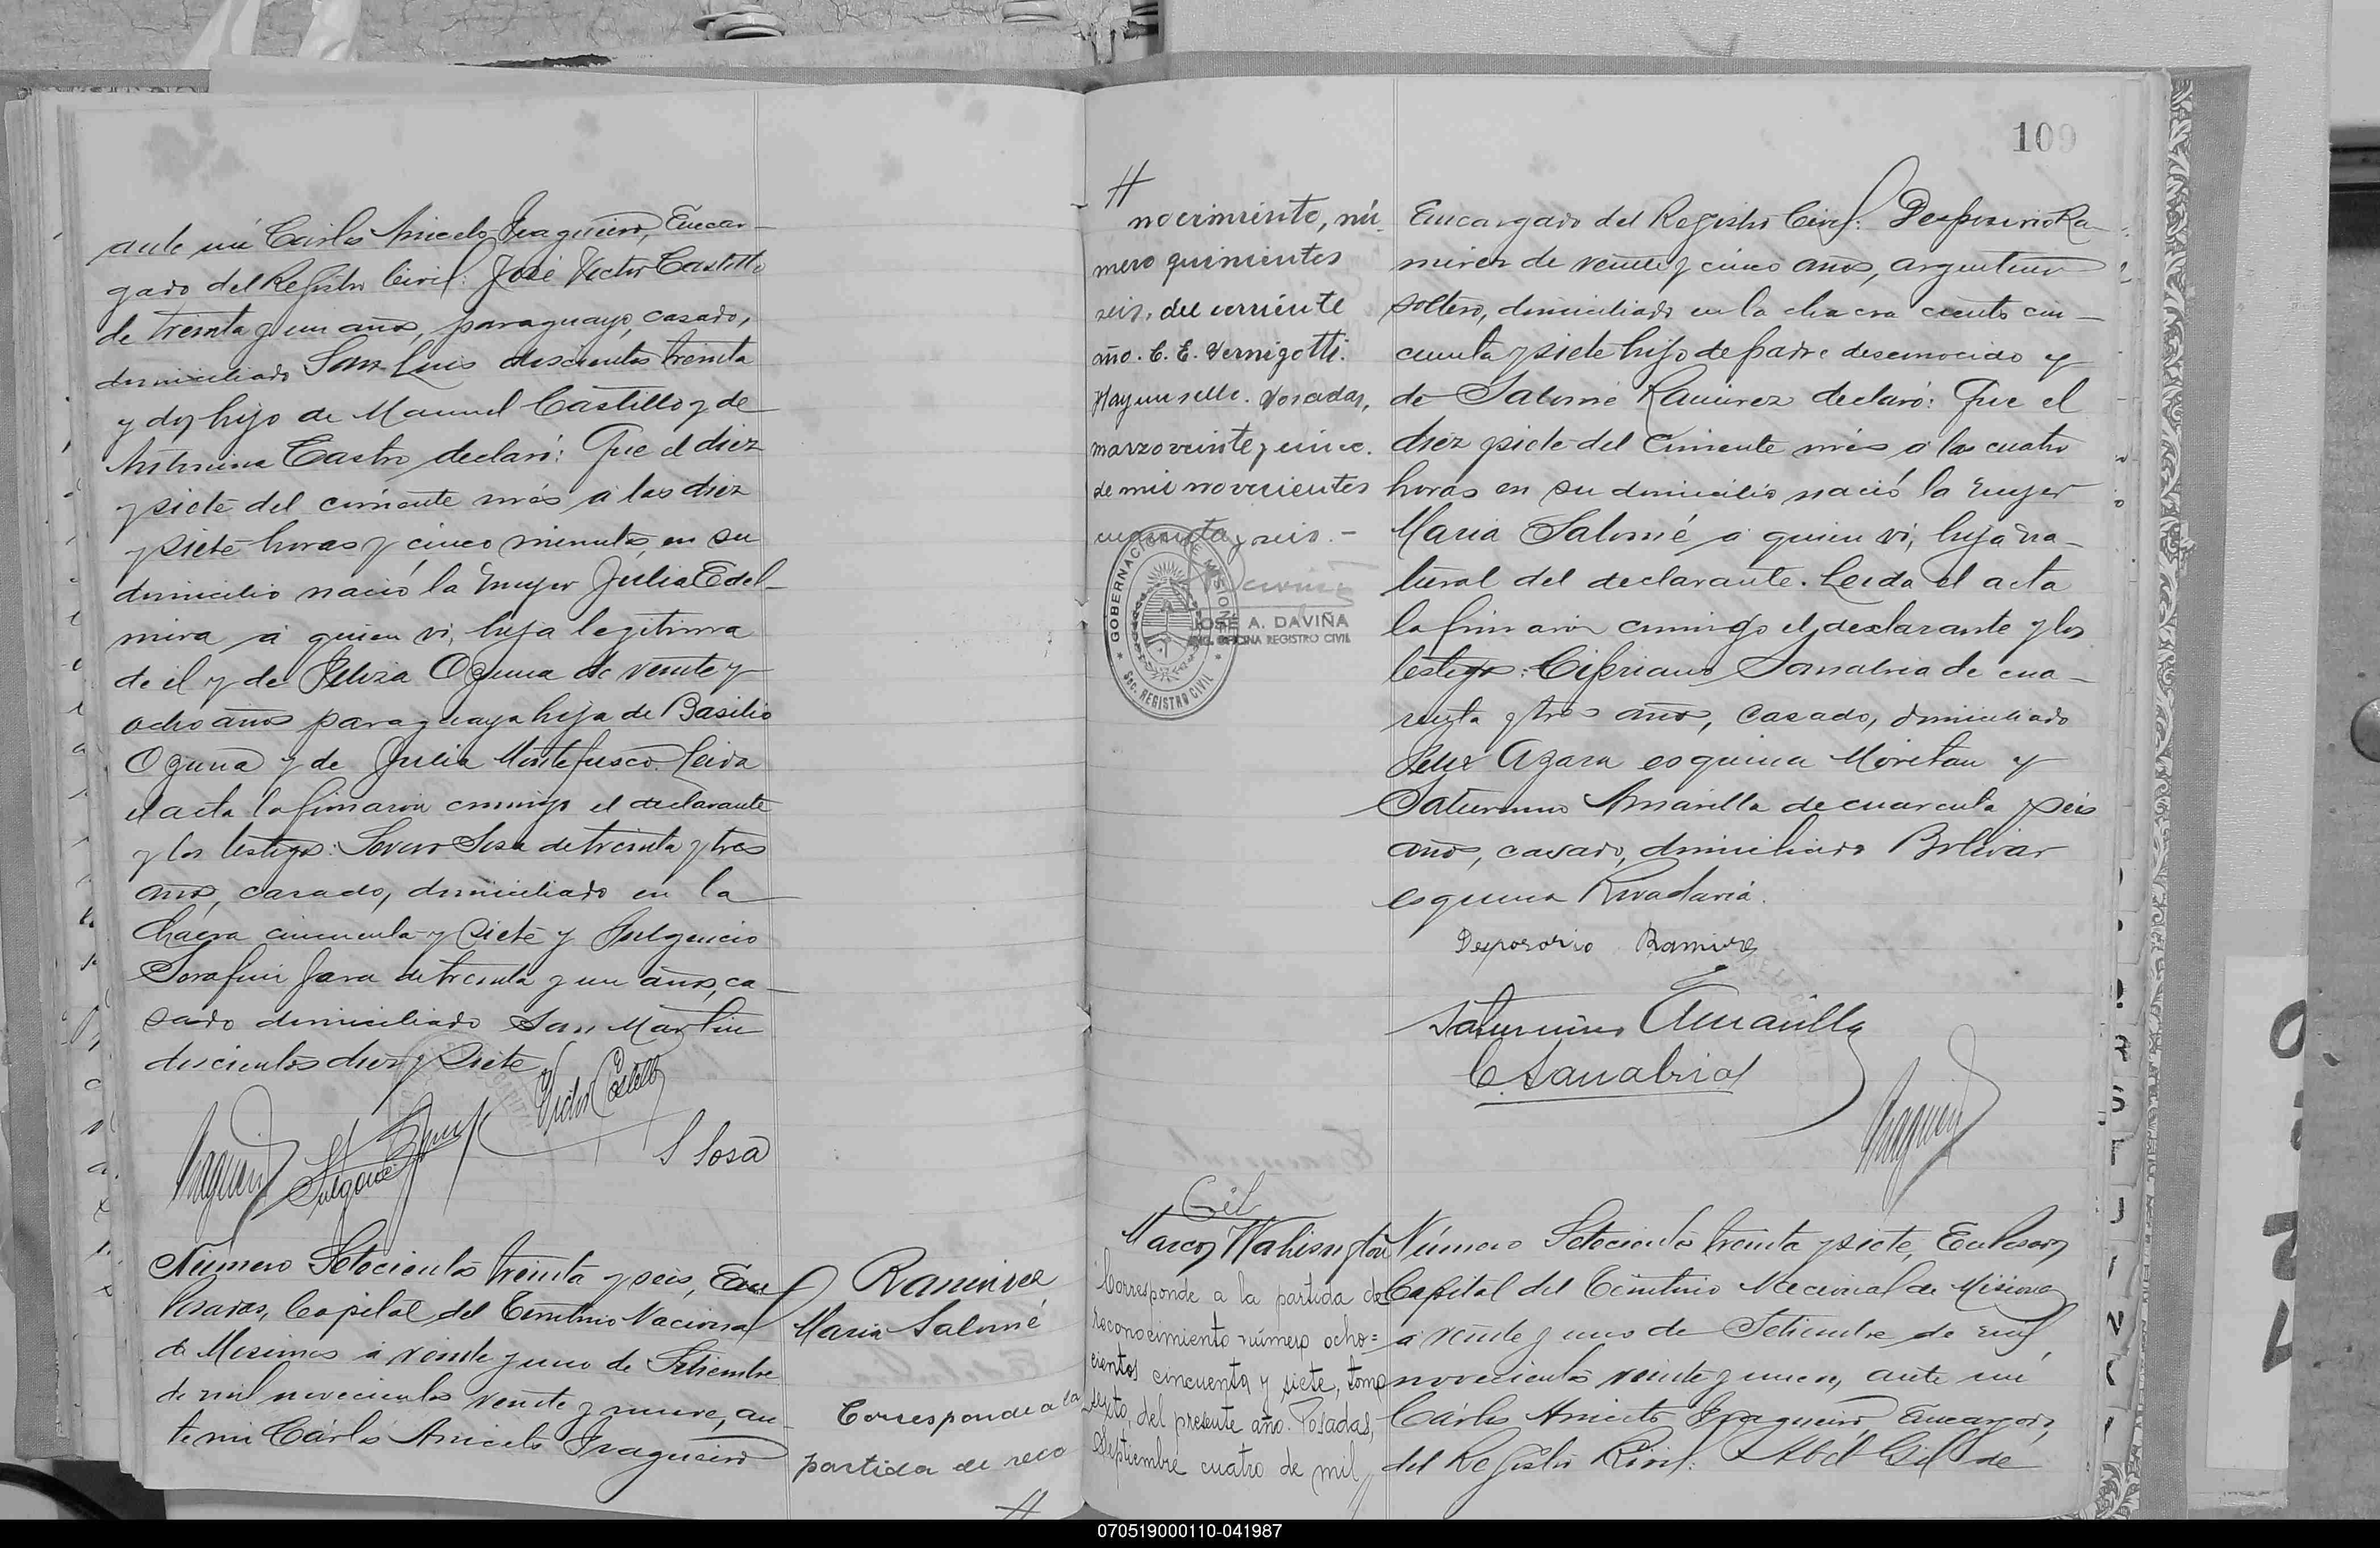 ante mí Carlos Aniceto Iragueiro, Encar-
gado del Registro Civil: José Victor Castillo
de treinta y un años, paraguayo, casado,
domiciliado San Luis doscientos treinta
y dos hijo de Manuel Castillo y de
Antonina Castro declaró: Que el diez
y siete del corriente mes a las diez
y siete horas y cinco minutos, en su
domicilio nació la mujer Julia Edel-
mira a quien vi, hija legítima
de el y de Feliza Ozuna de veinte y
ocho años paraguaya hija de Basilio
Ozuna y de Julia Montefusco. Leida
el acta la firmaron conmigo el declarante
y los testigos: Severo Sosa de treinta y tres
años, casado, domiciliado en la
Chacra cincuenta y siete y Fulgencio
Serafin Jara de treinta y un años, ca-
sado domiciliado San Martin
doscientos diez y siete
Victor Castillo
S Sosa
Número Setecientos treinta y seis, En
Posadas, Capital del Territorio Nacional
de Misiones a veinte y uno de Setiembre
de mil novecientos veinte y nueve, an-
te mi Carlos Aniceto Iragueiro
Ramirez
Maria Salomé
Corresponde a la
partida de reco
#
109
#
nocimiento, nú-
mero quinientos
seis, del corriente
año. C. E. Vernigotti.
Hay un sello. Posadas,
marzo veinte y cinco.
de mil novecientos
cuarenta y seis.-
GOBERNACION DE MISIONES
SEC. REGISTRO CIVIL
JOSE A. DAVIÑA
ENC. OFICINA REGISTRO CIVIL
Encargado del Registro Civil: Desposorio Ra-
mirez de veinte y cinco años, argentino
soltero, domiciliado en la chacra ciento cin-
cuenta y siete hijo de padre desconocido y
de Salomé Ramirez declaró: Que el
diez y siete del corriente mes a las cuatro
horas en su domicilio nació la mujer
Maria Salomé a quien vi, hija na-
tural del declarante. Leida el acta
la firmaron conmigo el declarante y los
testigos: Cipriano Sanabria de cua-
renta y tres años, casado, domiciliado
Felix Azara esquina Moritan y
Saturnino Amarilla de cuarenta y seis
años, casado, domiciliado Bolivar
esquina Rivadavia.
Desposorio Ramirez
Saturnino Amarilla
C Sanabria
Gil
Marcos Wahisngton
Corresponde a la partida de
reconocimiento número ocho=
cientos cincuenta y siete, tomo
sexto, del presente año. Posadas,
Septiembre cuatro de mil
Número Setecientos treinta y siete, En Posadas
Capital del Territorio Nacional de Misiones
a veinte y uno de Setiembre de mil
novecientos veinte y nueve, ante mi
Cárlos Aniceto Iragueiro Encargado
del Registro Civil: Abel Gil de
070519000110-041987